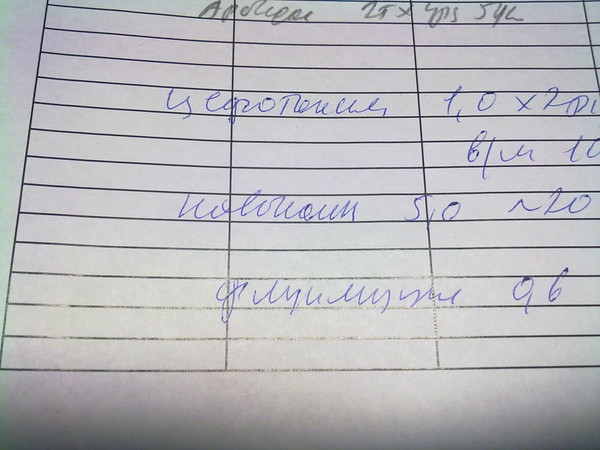 Арбидол 2т х 4р/д 5 дн
Цефотаксим 1,0 х 2р/
в/м 10
новокаин 5,0 ~20
флуимуцил 0,6